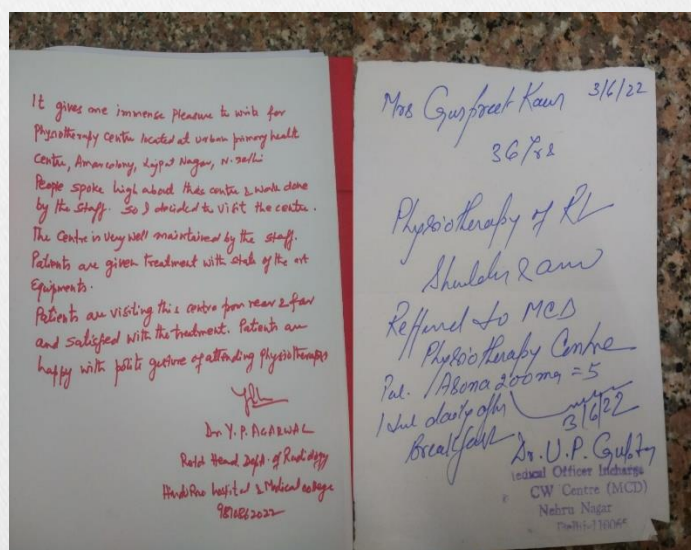 It gives me immense Pleasure to write for
Physiotherapy Centre located at urban primary health
Centre, Amar colony, Lajpat Nagar, N. Delhi
People spoke high about this centre & work done
by the staff. So I decided to visit the centre.
The Centre is very well maintained by the staff.
Patients are given treatment with state of the art
Equipments.
Patients are visiting this centre from near & far
and satisfied with the treatment. Patients are
happy with polite gesture of attending Physiotherapists
Dr. Y. P. AGARWAL
Retd Head Deptt. of Radiology
Hindu Rao hospital & Medical college
9810862022
Mrs Gurpreet Kaur 3/6/22
36 Yrs
Physiotherapy of Rt
Shoulder & arm
Reffered to MCD
Physiotherapy Centre
200mg = 5
1 daily after
3/6/22
Breakfast
Dr. U. P. Gupta
Medical Officer Incharge
CW Centre (MCD)
Nehru Nagar
Delhi-110065